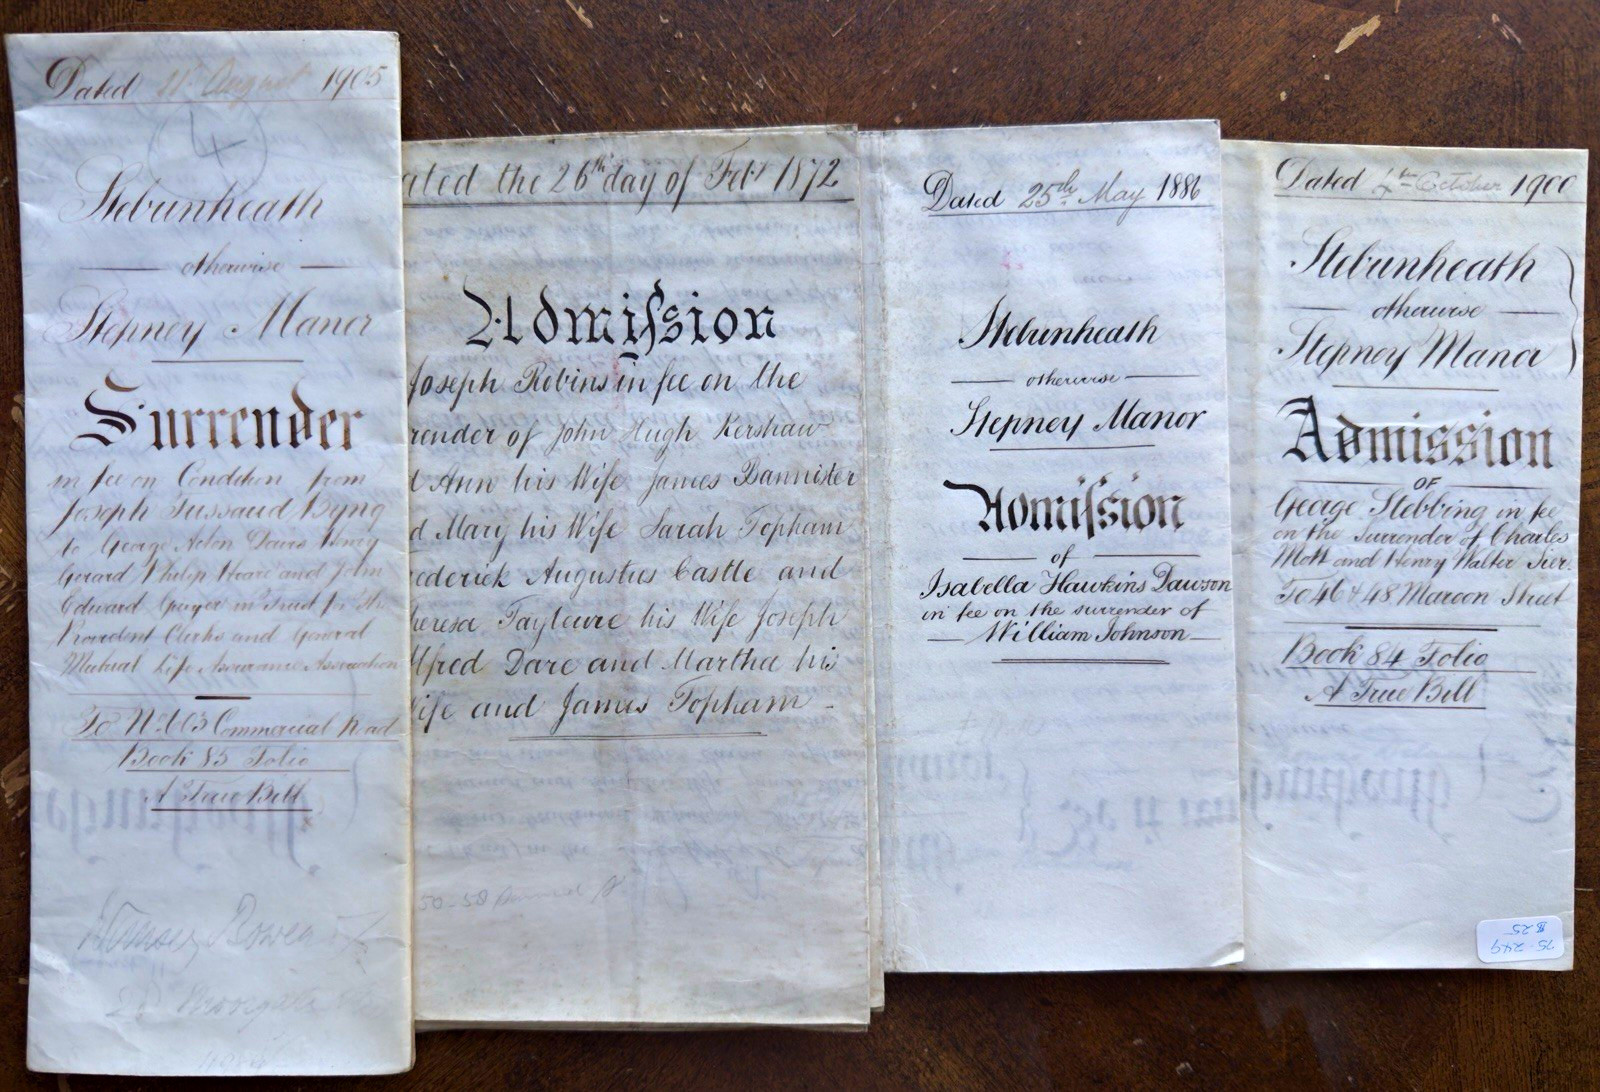 Dated 21st August 1905
4
Stebunheath
otherwise
Stepney Manor
Surrender
in fee on Condition from
Joseph Tussaud Byng
to George Acton Davis Henry
Gerard Philip Hoare and John
Edward Gwyer in Trust for the
Provident Clerks and General
Mutual Life Assurance Association
To No. 603 Commercial Road
Book 85 Folio
A True Bill
Bowen
ated the 26th day of Feby 1872
Admission
Joseph Robins in fee on the
render of John Hugh Kershaw
d Ann his Wife James Bannister
d Mary his Wife Sarah Topham
ederick Augustus Castle and
heresa Tayleure his Wife Joseph
lfred Dare and Martha his
ife and James Topham
50-58
Dated 25th May 1886
Stebunheath
otherwise
Stepney Manor
Admission
of
Isabella Hawkins Dawson
in fee on the surrender of
William Johnson
Dated 4th October 1900
Stebunheath
otherwise
Stepney Manor
Admission
OF
George Stebbing in fee
on the surrender of Charles
Mott and Henry Walter Tier.
To 46 & 48 Maroon Street
Book 84 Folio
A True Bill
75-249
$25